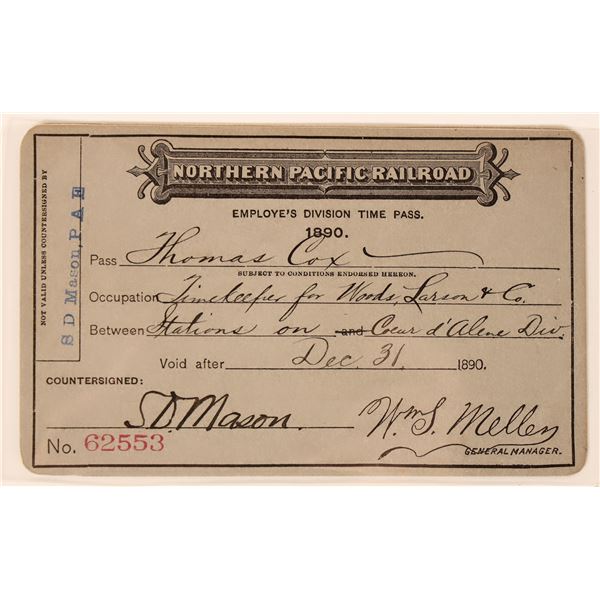 NOT VALID UNLESS COUNTERSIGNED BY
S D Mason, P A E
NORTHERN PACIFIC RAILROAD
EMPLOYE'S DIVISION TIME PASS.
1890.
Pass Thomas Cox
SUBJECT TO CONDITIONS ENDORSED HEREON.
Occupation Timekeeper for Woods, Larson & Co.
Between Stations on and Coeur d'Alene Div.
Void after Dec. 31, 1890.
COUNTERSIGNED:
S.D. Mason.
Wm S. Mellen
GENERAL MANAGER.
No. 62553